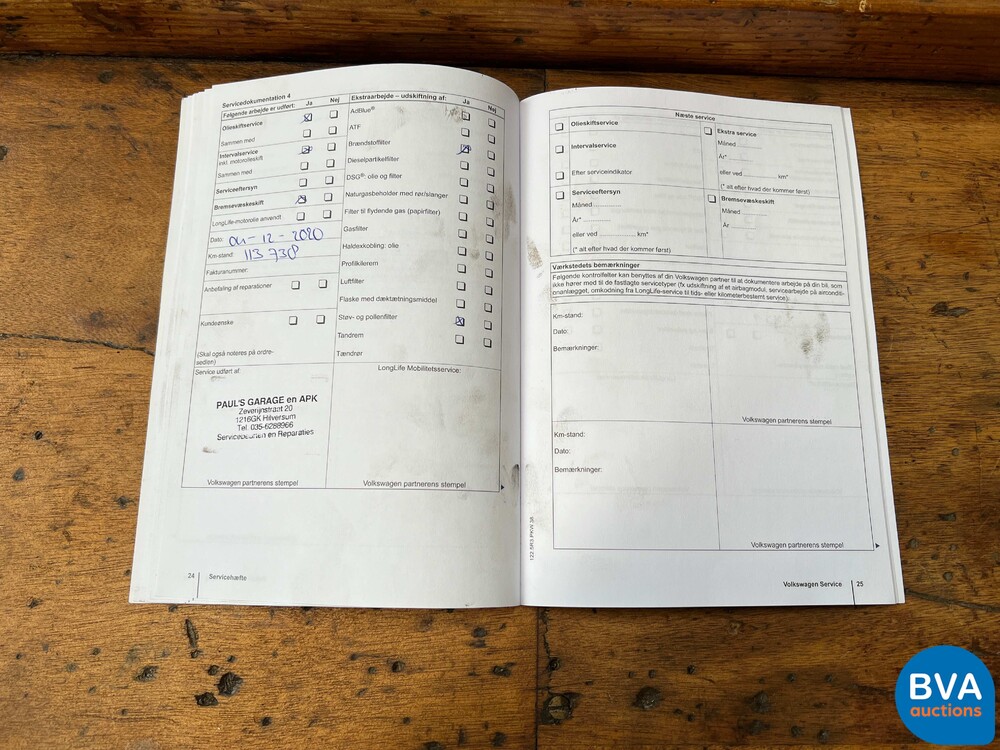 Servicedokumentation 4
Følgende arbejde er udført: Ja Nej
Olieskiftservice
Sammen med
Intervalservice
inkl. motorolieskift
Sammen med
Serviceeftersyn
Bremsevæskeskift
LongLife-motorolie anvendt
Dato: 04-12-2020
Km-stand: 113 738
Fakturanummer:
Anbefaling af reparationer
Kundeønske
(Skal også noteres på ordre-
sedlen)
Ekstraarbejde – udskiftning af: Ja Nej
AdBlue®
ATF
Brændstoffilter
Dieselpartikelfilter
DSG®: olie og filter
Naturgasbeholder med rør/slanger
Filter til flydende gas (papirfilter)
Gasfilter
Haldexkobling: olie
Profilkilerem
Luftfilter
Flaske med dæktætningsmiddel
Støv- og pollenfilter
Tandrem
Tændrør
Service udført af:
PAUL'S GARAGE en APK
Zeverijnstraat 20
1216GK Hilversum
Tel. 035-6288966
Servicebeurten en Reparaties
Volkswagen partnerens stempel
LongLife Mobilitetsservice:
Volkswagen partnerens stempel
24 Servicehæfte
Næste service
Olieskiftservice
Intervalservice
Efter serviceindikator
Serviceeftersyn
Måned
År*
eller ved km*
(* alt efter hvad der kommer først)
Ekstra service
Måned
År*
eller ved km*
(* alt efter hvad der kommer først)
Bremsevæskeskift
Måned
År
Værkstedets bemærkninger
Følgende kontrolfelter kan benyttes af din Volkswagen partner til at dokumentere arbejde på din bil, som
ikke hører med til de fastlagte servicetyper (fx udskiftning af et airbagmodul, servicearbejde på aircondi-
onanlægget, omkodning fra LongLife-service til tids- eller kilometerbestemt service).
Km-stand:
Dato:
Bemærkninger:
Volkswagen partnerens stempel
Km-stand:
Dato:
Bemærkninger:
Volkswagen partnerens stempel
122.5R3.PKW.38
Volkswagen Service 25
BVA
auctions